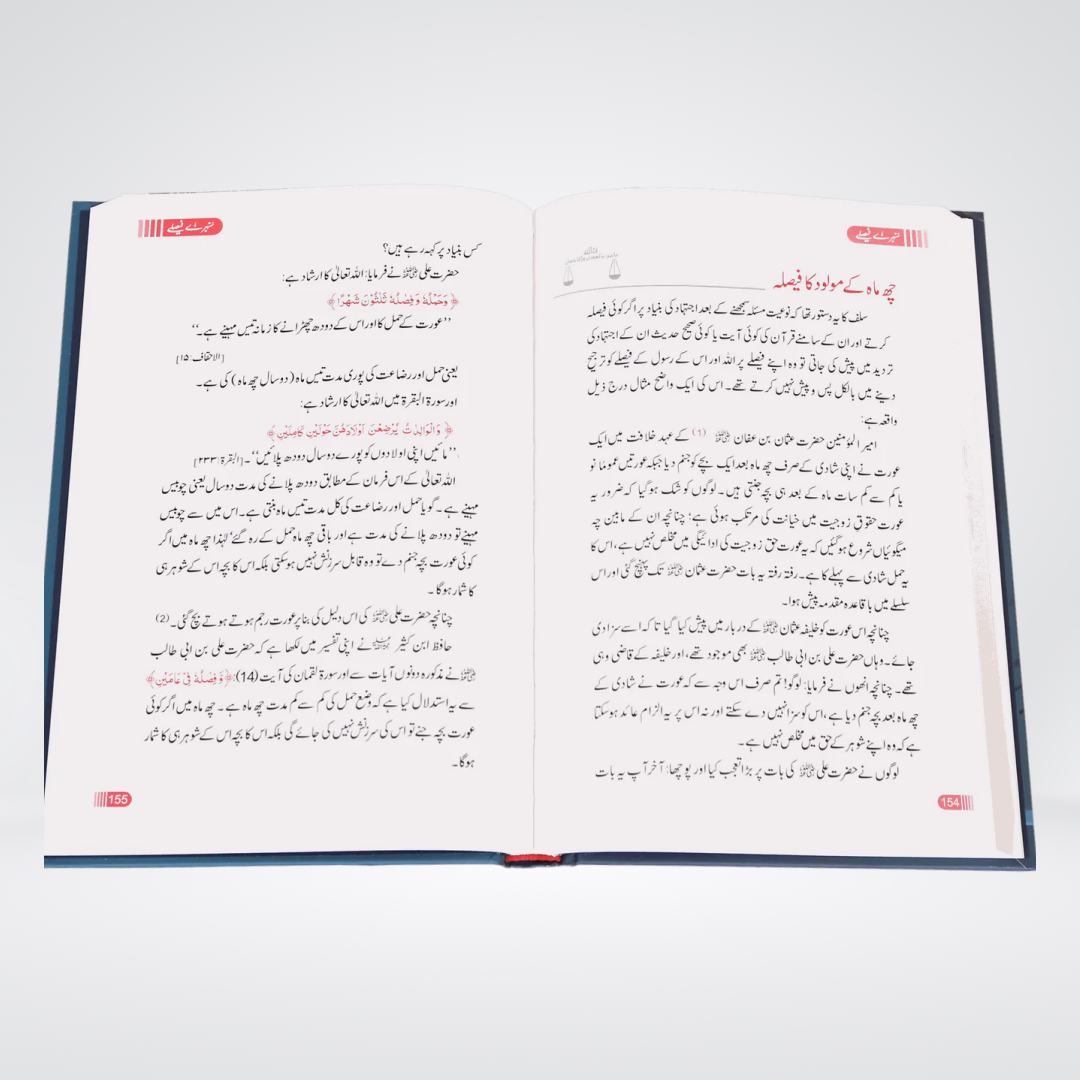 سنہرے فیصلے
چھ ماہ کے مولود کا فیصلہ
سلف کا یہ دستور تھا کہ نوعیت مسئلہ سمجھنے کے بعد اجتہاد کی بنیاد پر اگر کوئی فیصلہ
کرتے اور ان کے سامنے قرآن کی کوئی آیت یا کوئی صحیح حدیث ان کے اجتہاد کی
تردید میں پیش کی جاتی تو وہ اپنے فیصلے پر اللہ اور اس کے رسول کے فیصلے کو ترجیح
دینے میں بالکل پس و پیش نہیں کرتے تھے۔ اس کی ایک واضح مثال درج ذیل
واقعہ ہے:
امیر المؤمنین حضرت عثمان بن عفان ﷜ (1) کے عہد خلافت میں ایک
عورت نے اپنی شادی کے صرف چھ ماہ بعد ایک بچے کو جنم دیا جبکہ عورتیں عموماً نو
یا کم سے کم سات ماہ کے بعد ہی بچہ جنتی ہیں۔ لوگوں کو شک ہو گیا کہ ضرور یہ
عورت حقوقِ زوجیت میں خیانت کی مرتکب ہوئی ہے؛ چنانچہ ان کے مابین چہ
میگوئیاں شروع ہو گئیں کہ یہ عورت حق زوجیت کی ادائیگی میں مخلص نہیں ہے، اس کا
یہ حمل شادی سے پہلے کا ہے۔ رفتہ رفتہ یہ بات حضرت عثمان ﷜ تک پہنچ گئی اور اس
سلسلے میں باقاعدہ مقدمہ پیش ہوا۔
چنانچہ اس عورت کو خلیفہ عثمان ﷜ کے دربار میں پیش کیا گیا تا کہ اسے سزا دی
جائے۔ وہاں حضرت علی بن ابی طالب ﷜ بھی موجود تھے، اور خلیفہ کے قاضی وہی
تھے۔ چنانچہ انھوں نے فرمایا: لوگو! تم صرف اس وجہ سے کہ عورت نے شادی کے
چھ ماہ بعد بچہ جنم دیا ہے، اس کو سزا نہیں دے سکتے اور نہ اس پر یہ الزام عائد ہو سکتا
ہے کہ وہ اپنے شوہر کے حق میں مخلص نہیں ہے۔
لوگوں نے حضرت علی ﷜ کی بات پر بڑا تعجب کیا اور پوچھا: آخر آپ یہ بات
154
سنہرے فیصلے
کس بنیاد پر کہہ رہے ہیں؟
حضرت علی ﷜ نے فرمایا: اللہ تعالیٰ کا ارشاد ہے:
﴿ وَحَمْلُهُ وَفِصٰلُهُ ثَلٰثُوْنَ شَهْرًا ﴾
’’عورت کے حمل کا اور اس کے دودھ چھڑانے کا زمانہ تیس مہینے ہے۔‘‘
[الاحقاف: ۱۵]
یعنی حمل اور رضاعت کی پوری مدت تیس ماہ (دو سال چھ ماہ) کی ہے۔
اور سورۃ البقرۃ میں اللہ تعالیٰ کا ارشاد ہے:
﴿ وَالْوَالِدٰتُ يُرْضِعْنَ اَوْلَادَهُنَّ حَوْلَيْنِ كَامِلَيْنِ ﴾
’’مائیں اپنی اولادوں کو پورے دو سال دودھ پلائیں‘‘۔ [البقرۃ: ۲۳۳]
اللہ تعالیٰ کے اس فرمان کے مطابق دودھ پلانے کی مدت دو سال یعنی چوبیس
مہینے ہے۔ گویا حمل اور رضاعت کی کل مدت تیس ماہ بنتی ہے۔ اس میں سے چوبیس
مہینے تو دودھ پلانے کی مدت ہے اور باقی چھ ماہ حمل کے رہ گئے؛ لہٰذا چھ ماہ میں اگر
کوئی عورت بچہ جنم دے تو وہ قابل سرزنش نہیں ہو سکتی بلکہ اس کا بچہ اس کے شوہر ہی
کا شمار ہو گا۔
چنانچہ حضرت علی ﷜ کی اس دلیل کی بنا پر عورت رجم ہوتے ہوتے بچ گئی۔ (2)
حافظ ابن کثیر نے اپنی تفسیر میں لکھا ہے کہ حضرت علی بن ابی طالب
﷜ نے مذکورہ دونوں آیات سے اور سورۃ لقمان کی آیت (14): ﴿وَفِصٰلُهُ فِيْ عَامَيْنِ﴾
سے یہ استدلال کیا ہے کہ وضع حمل کی کم سے کم مدت چھ ماہ ہے۔ چھ ماہ میں اگر کوئی
عورت بچہ جنے تو اس کی سرزنش نہیں کی جائے گی بلکہ اس کا بچہ اس کے شوہر ہی کا شمار
ہوگا۔
155